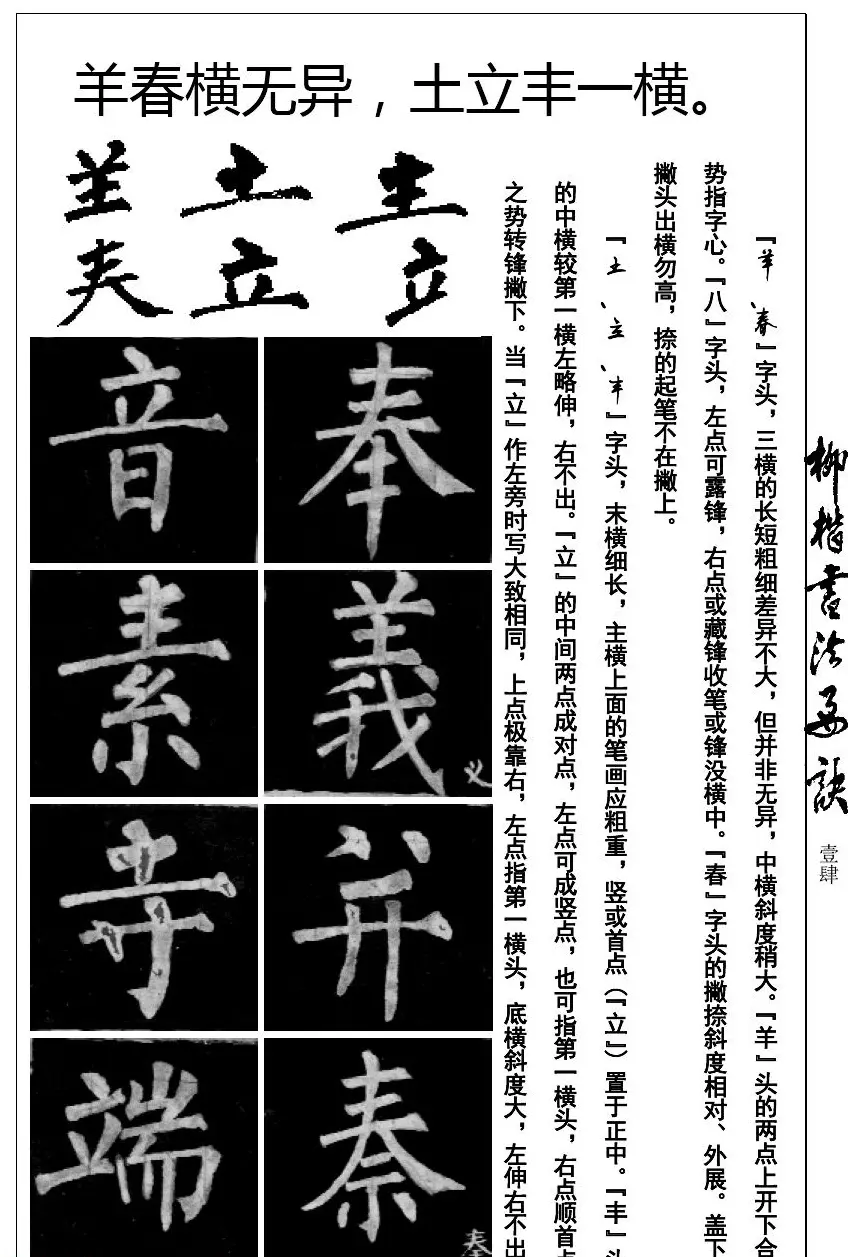 羊春横无异，土立丰一横。
土
立
立
奉
音
義
义
素
并
寺
秦
端
『羊、春』字头，三横的长短粗细差异不大，但并非无异，中横斜度稍大。『羊』头的两点上开下合
势指字心。『八』字头，左点可露锋，右点或藏锋收笔或锋没横中。『春』字头的撇捺斜度相对、外展。盖下
撇头出横勿高，捺的起笔不在撇上。
『土、立、丰』字头，末横细长，主横上面的笔画应粗重，竖或首点（『立』）置于正中。『丰』头
的中横较第一横左略伸，右不出。『立』的中间两点成对点，左点可成竖点，也可指第一横头，右点顺首点
之势转锋撇下。当『立』作左旁时写大致相同，上点极靠右，左点指第一横头，底横斜度大，左伸右不出
柳楷書法要訣
壹肆